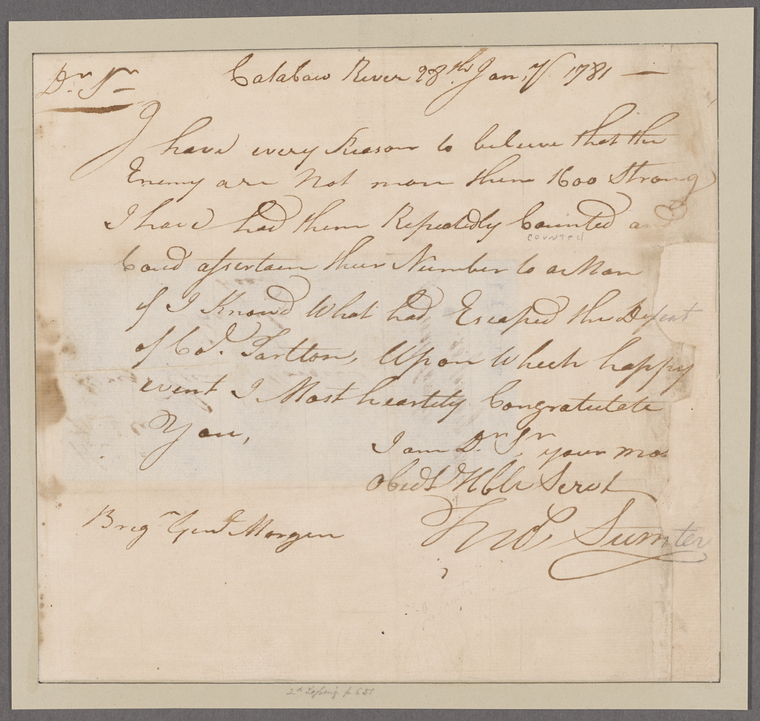 Dr. Sr
Catabaw River 28th Jany. 1781 —
I have every Reason to beleive that the
Enemy are Not more then 1600 Strong
I have had them Repeatedly Counted and
COUNTED
Coud assertain their Number to a Man
if I Knowd What had Escaped the Defeat
of Col. Tarlton, Upon Which happy
event I Most heartily Congratulate
You,
I am Dr. Sr your mos
Obedt Hble Servt
Brig Genl Morgan
Thos Sumter